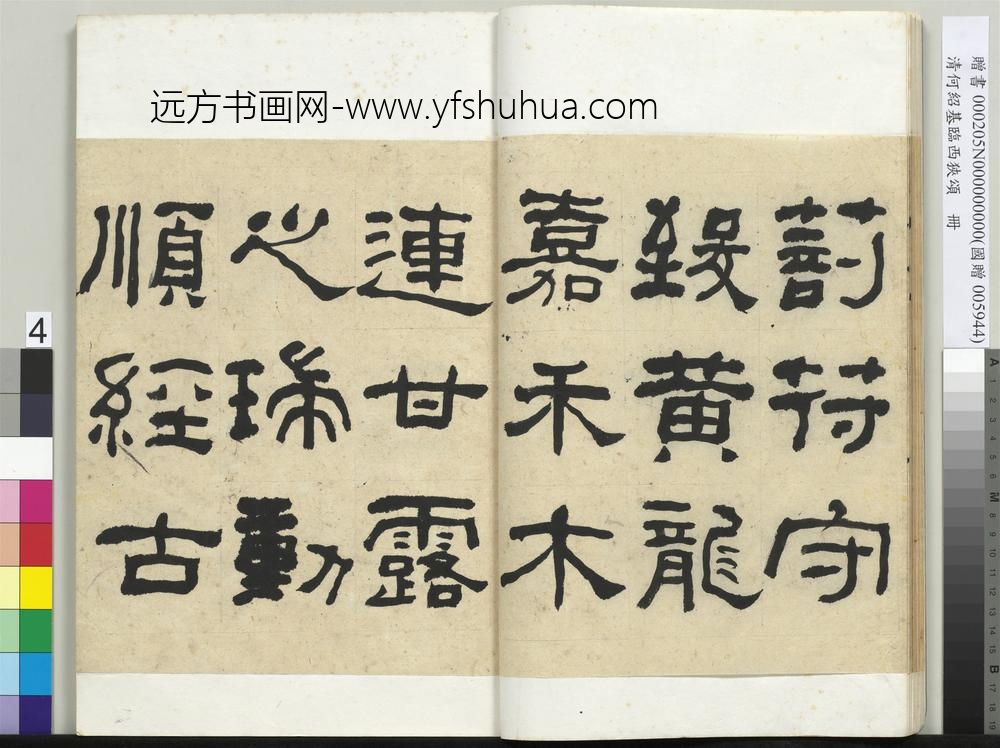 远方书画网-www.yfshuhua.com
剖符守
致黄龍
嘉禾木
連甘露
之瑞動
順經古
贈書 000205N000000000(國贈 005944)
清何紹基臨西狹頌 冊
4
A 1 2 3 4 5 6 M 8 9 10 11 12 13 14 15 B 17 18 19